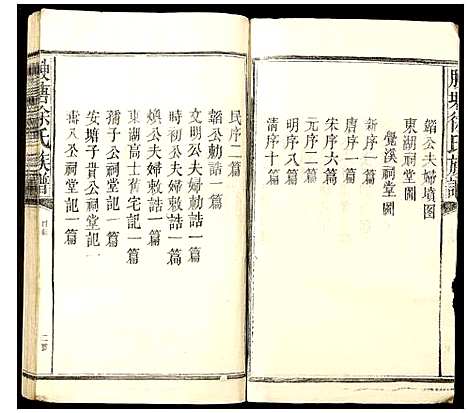 韜公夫婦墳图
東湖祠堂圖
覺溪祠堂圖
新序一篇
唐序一篇
宋序六篇
元序二篇
明序六篇
清序十篇
徐氏族譜
民序二篇
韜公勅誥一篇
文明公夫婦勅誥一篇
時初公夫婦敕誥一篇
煥公夫婦敕誥一篇
東湖高士舊宅記一篇
孺子公祠堂記一篇
安塘子貴公祠堂記一篇
公祠堂記一篇
塘徐氏族譜
目録
二